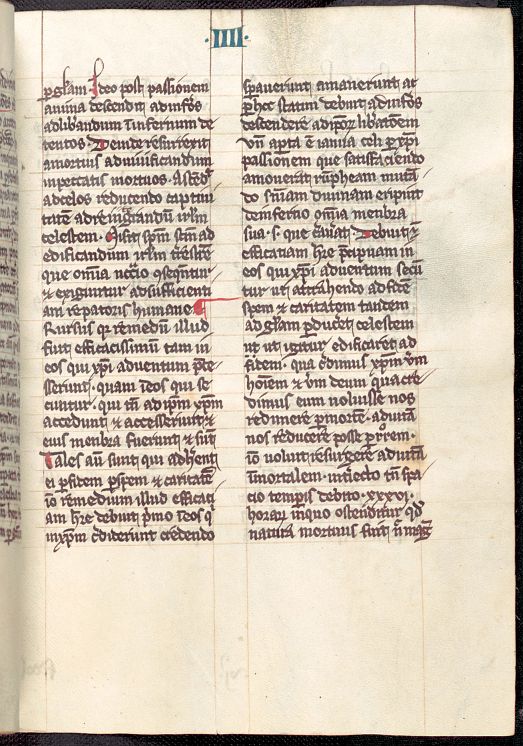 ·IIII·
p gl̃am. Ideo post passionem
anima descendit ad inf̃os
ad libandum ī infernum de
tentos. Deinde resurrexit
a mortuis ad uiuificandum
in peccatis mortuos. Ascend̃
ad celos reducendo captiui
tatē ad reintegrandū ir̃lm
celestem. Misit sp̃m sc̃m ad
edificandum ir̃lm t̃restre
que omnia nc̃cio ↄsequntur
⁊ exiguntur ad sufficienti
am reparatōis humane.
Rursus q̃r remediū illud
fuit efficacissimū tam in
eos qui xp̃i aduentum p̃ces
serunt. quam ī eos qui se
cuntur. qui tm̃ ad ip̃m xp̃m
accedunt ⁊ accesserunt ⁊
eius menbra fuerunt ⁊ sūt
Tales aū sunt qui adherēt
ei p fidem p spem ⁊ caritatē
iō remedium illud efficaci
am h̃re debuit p̃mo ī eos q̃
in xp̃m c̃diderunt credendo
spauerunt amauerunt at
p hec statim debuit ad inf̃os
descendere ad ip̃oꝝ libatōem
Vñ apta ē ianua celi p xp̃i
passionem que satisfaciendo
amouerat rūpheam mutā
do sñiam diuinam eripuit
de inferno omnia menbra
sua. Debuit ⁊
efficatiam h̃re p̃cipuam in
eos qui xp̃i aduentum secū
tur ut attrahendo ad fidē
spem ⁊ caritatem tandem
ad gl̃am pduceret celestem
ut ut igitur edificaret ad
fidem. qua c̃dimus xp̃m ūm
hoĩem ⁊ ūm deum qua cre
dimus eum uoluisse nos
redimere p mortē. ad uitā
nos reducere posse
iō uoluit resurgere ad uitā
īmortalem. int̃iecto tñ spa
cio tempis debito. XXXVI.
horaꝝ in quo ostenditur qd̃
natura mortuus fuit ñ mag̃